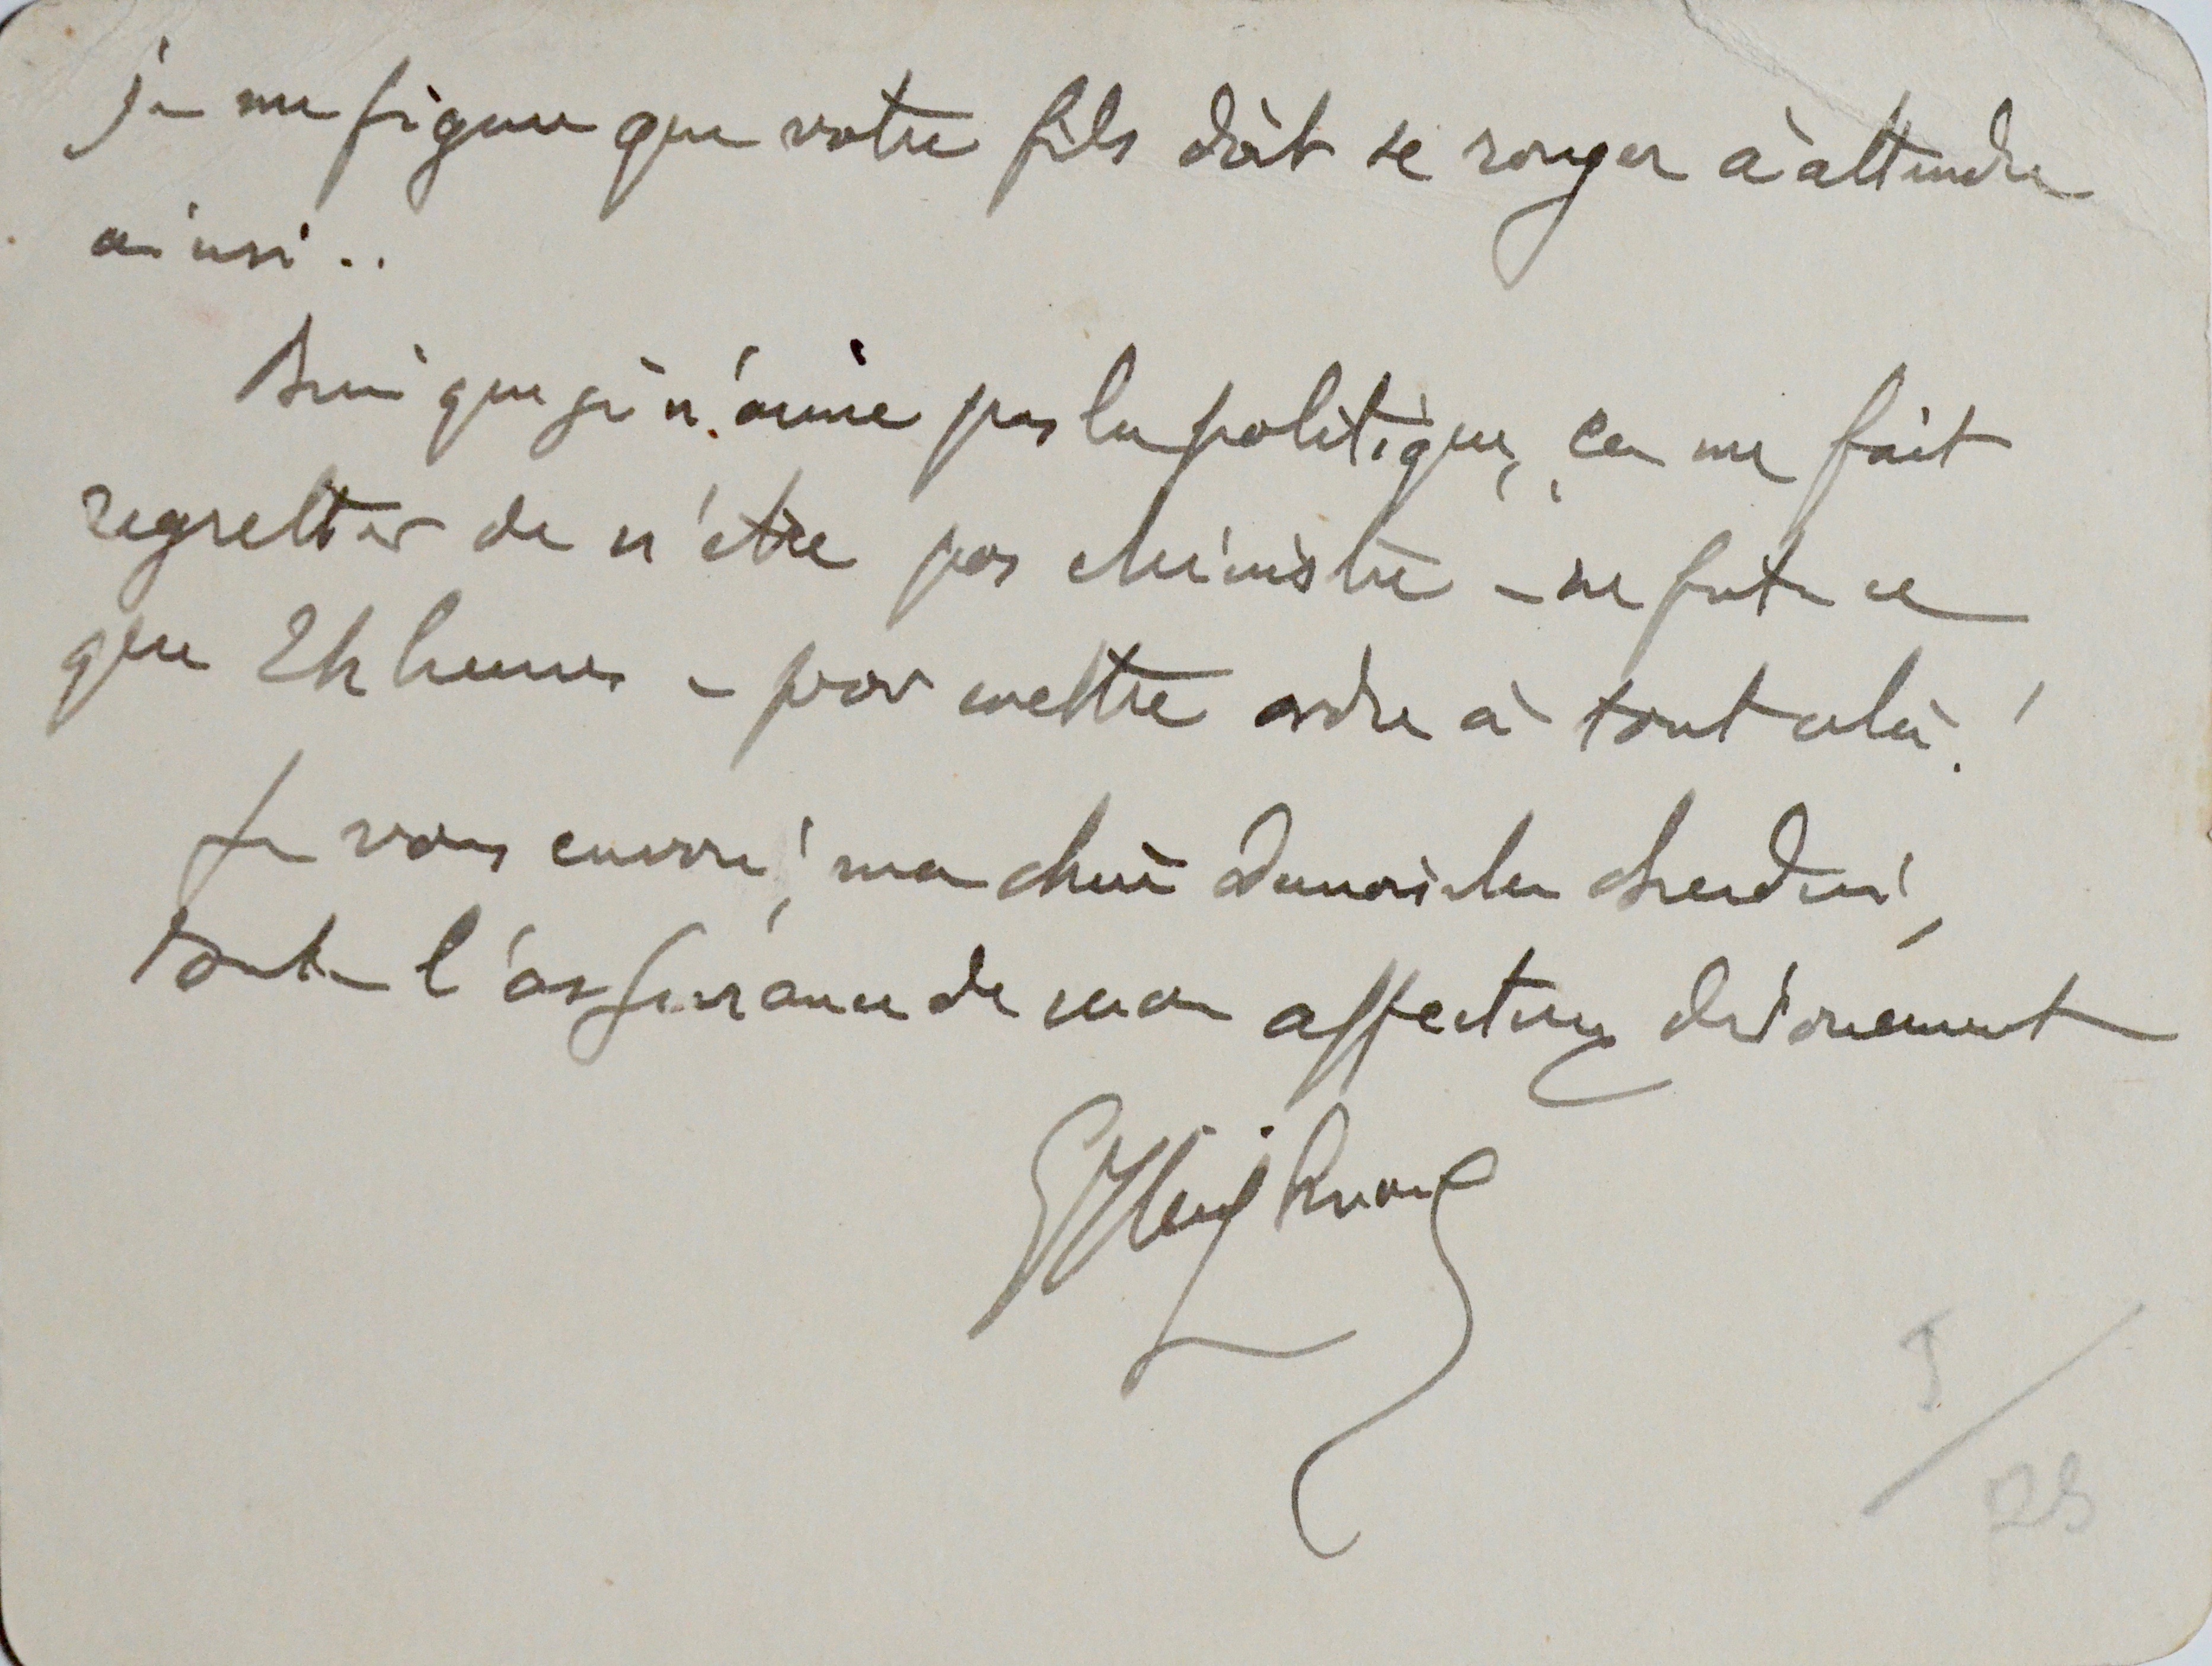 je me figure que votre fils doit se ronger à attendre
ainsi..
Bien que je n'aime pas la politique, ça me fait
regretter de n'être pas Ministre – ne fut-ce
que 24 heures – pour mettre ordre à tout cela!
Je vous envoie, ma chère
toute l'assurance de mon affectueux dévouement